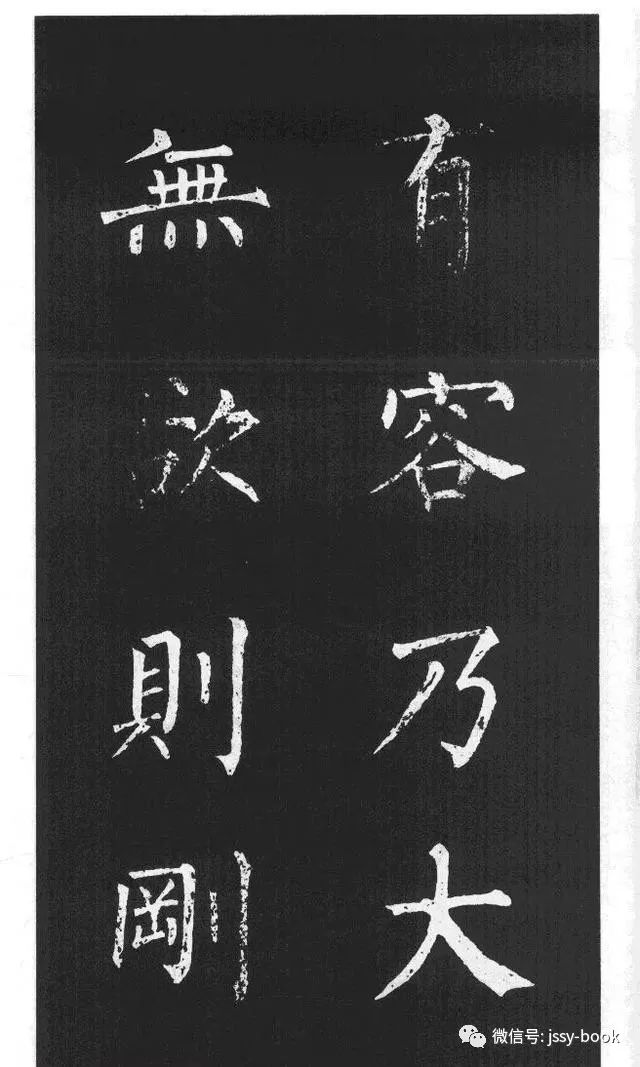 有容乃大
無欲則剛
微信号: jssy-book